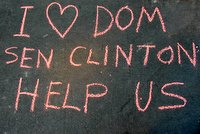 I ♡ DOM
SEN CLINTON
HELP US